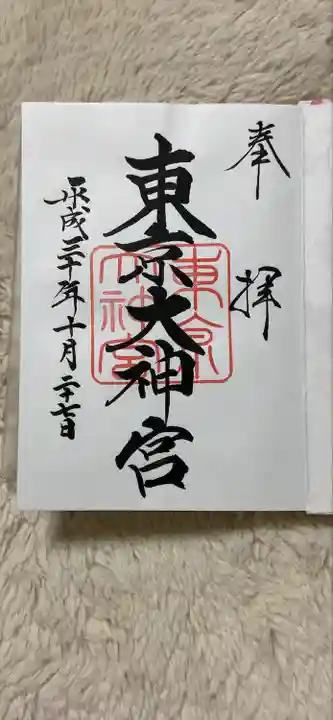 奉拝
東京大神宮
東京大神宮
平成三十年十月二十七日